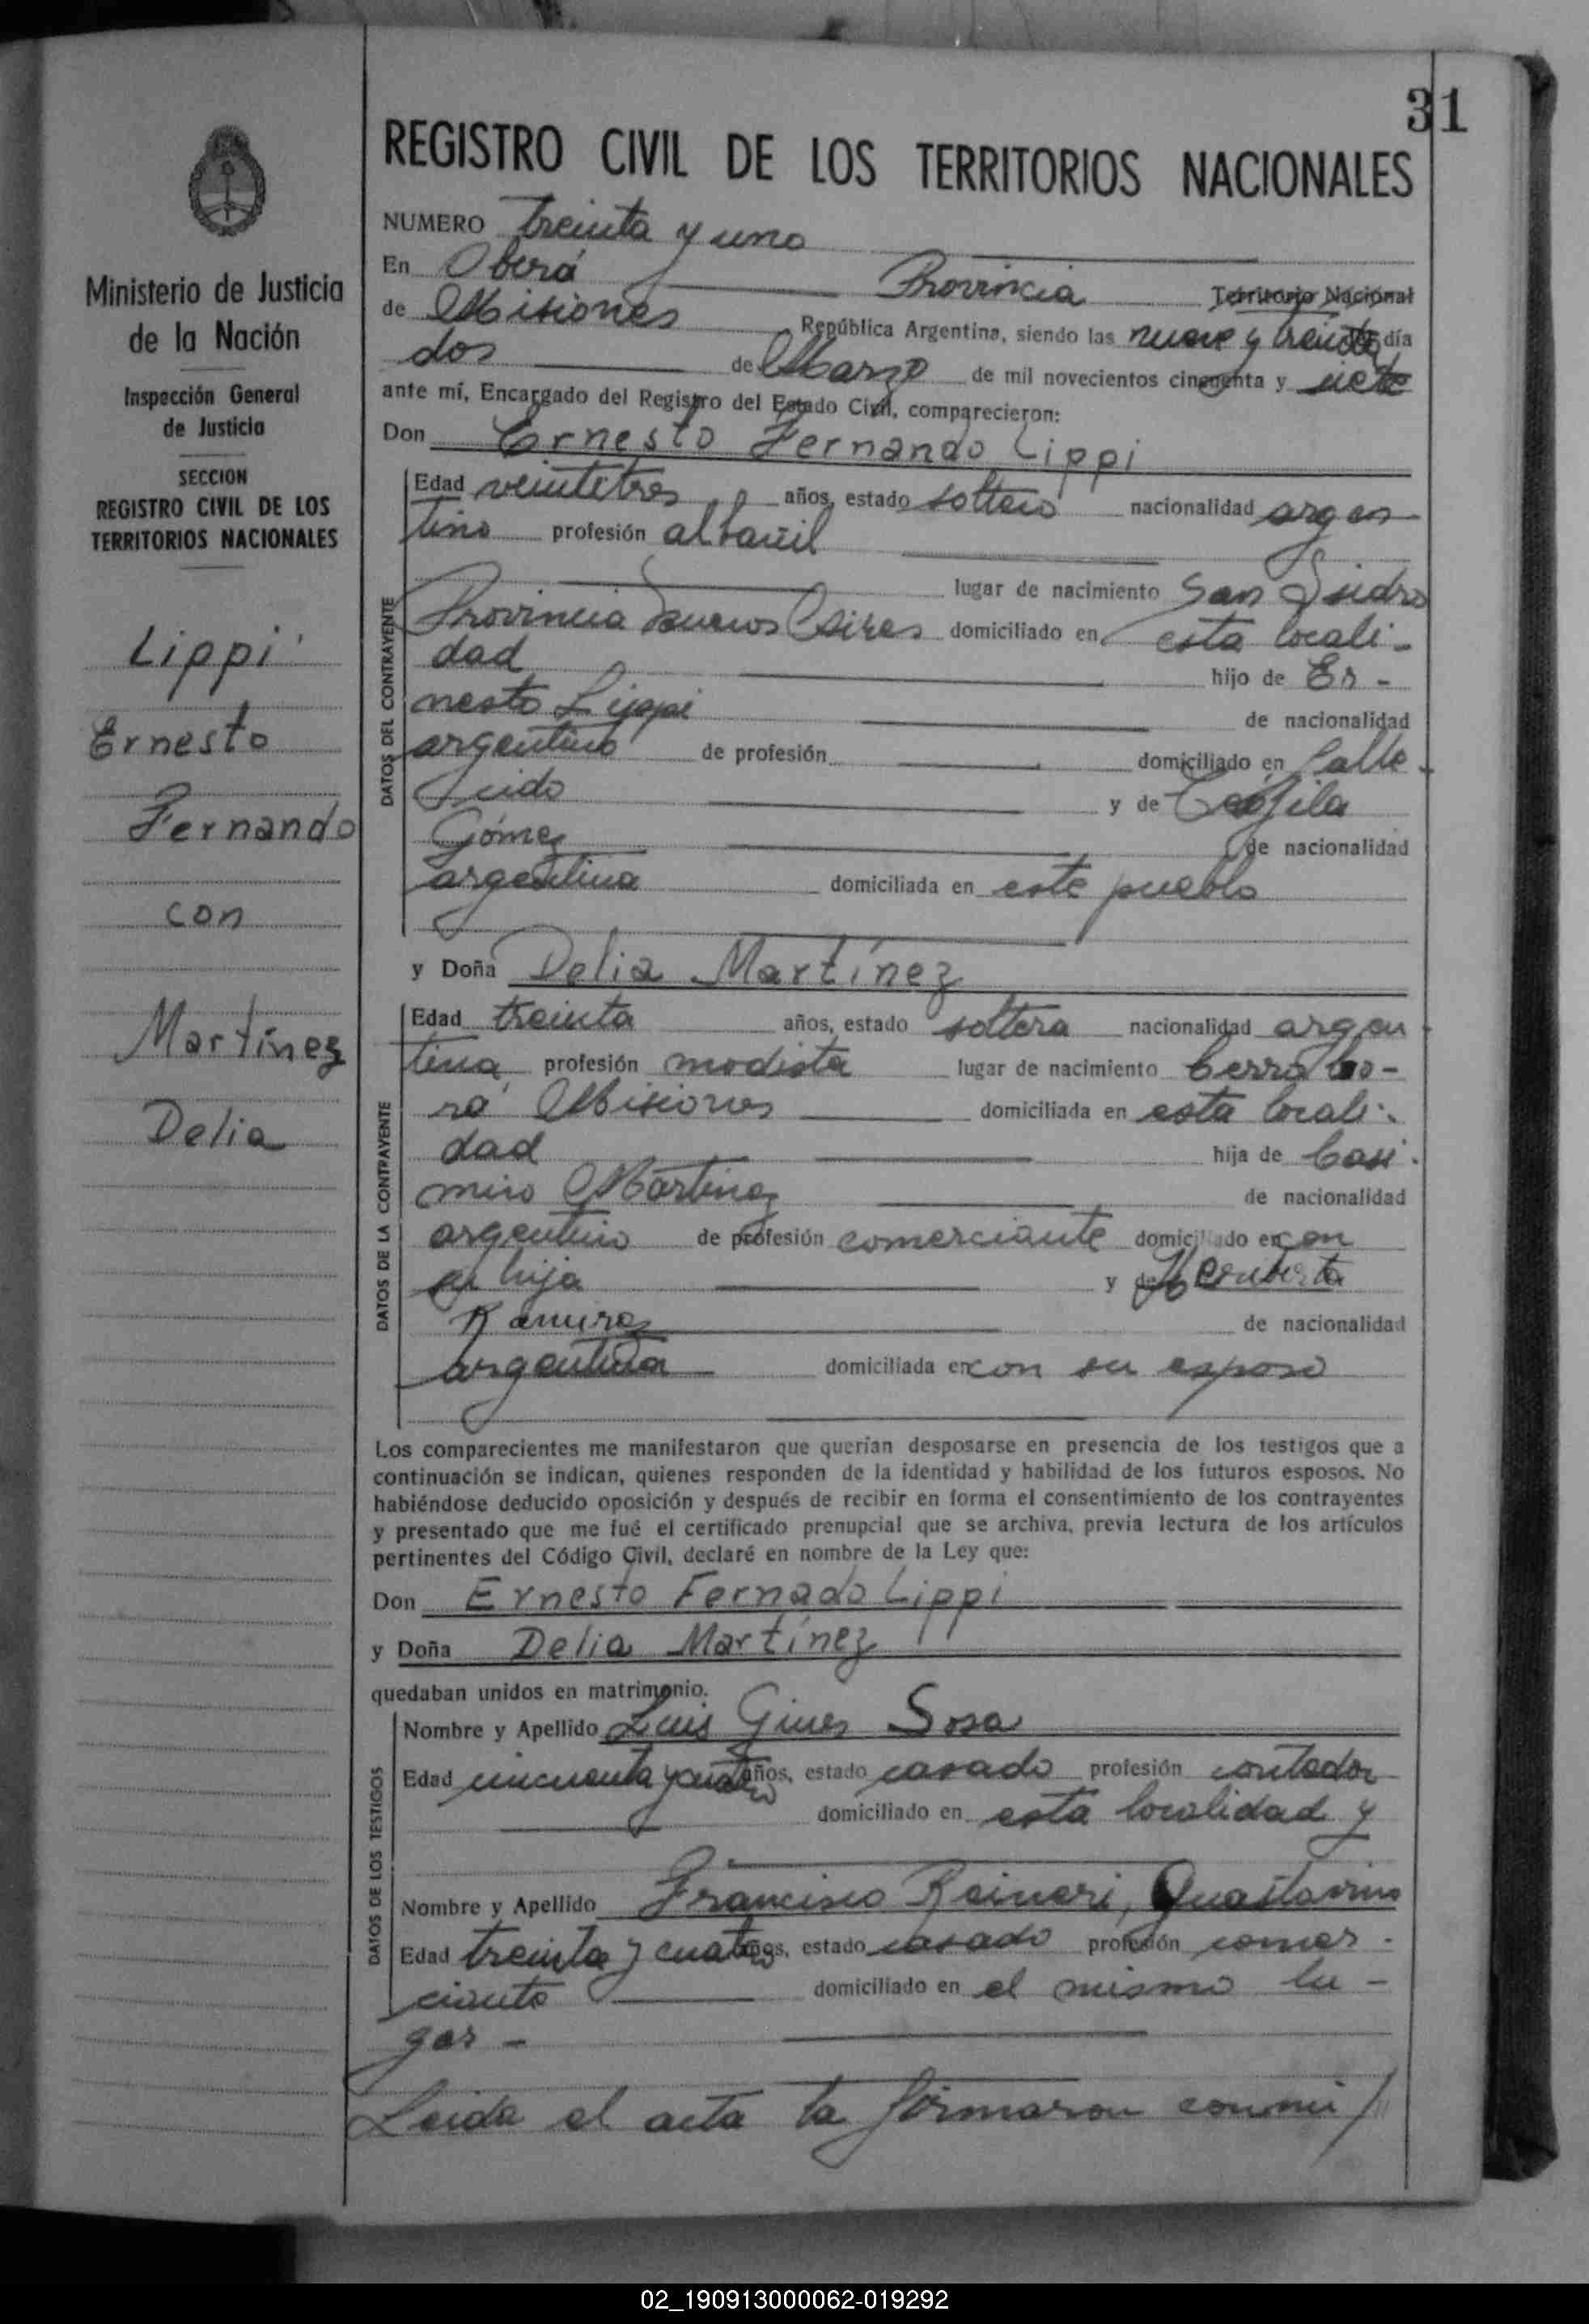 31
REGISTRO CIVIL DE LOS TERRITORIOS NACIONALES
Ministerio de Justicia
de la Nación
Inspección General
de Justicia
SECCION
REGISTRO CIVIL DE LOS
TERRITORIOS NACIONALES
Lippi
Ernesto
Fernando
con
Martínez
Delia
NUMERO treinta y uno
En Oberá Provincia Territorio Nacional
de Misiones República Argentina, siendo las nueve y treinta día
dos de Marzo de mil novecientos cincuenta y siete
ante mí, Encargado del Registro del Estado Civil, comparecieron:
Don Ernesto Fernando Lippi
DATOS DEL CONTRAYENTE
Edad veintitres años, estado soltero nacionalidad argen
tino profesión albañil
lugar de nacimiento San Isidro
Provincia Buenos Aires domiciliado en esta locali-
dad hijo de Er-
nesto Lippi de nacionalidad
argentino de profesión domiciliado en Calle
y de
Gómez de nacionalidad
argentina domiciliada en este pueblo
y Doña Delia Martínez
DATOS DE LA CONTRAYENTE
Edad treinta años, estado soltera nacionalidad argen
tina profesión modista lugar de nacimiento Cerro Co-
rá Misiones domiciliada en esta locali-
dad hija de Casi-
miro Martinez de nacionalidad
argentino de profesión comerciante domiciliado en con
su hija y de Heriberta
Ramirez de nacionalidad
argentina domiciliada en con su esposo
Los comparecientes me manifestaron que querían desposarse en presencia de los testigos que a
continuación se indican, quienes responden de la identidad y habilidad de los futuros esposos. No
habiéndose deducido oposición y después de recibir en forma el consentimiento de los contrayentes
y presentado que me fué el certificado prenupcial que se archiva, previa lectura de los artículos
pertinentes del Código Civil, declaré en nombre de la Ley que:
Don Ernesto Fernado Lippi
y Doña Delia Martínez
quedaban unidos en matrimonio.
DATOS DE LOS TESTIGOS
Nombre y Apellido Luis Gines Sosa
Edad cincuenta y cuatro años, estado casado profesión contador
domiciliado en esta localidad y
Nombre y Apellido Francisco Reineri, Guastavino
Edad treinta y cuatro años, estado casado profesión comer-
ciante domiciliado en el mismo lu-
gar-
Leida el acta la firmaron conmi/
02_190913000062-019292